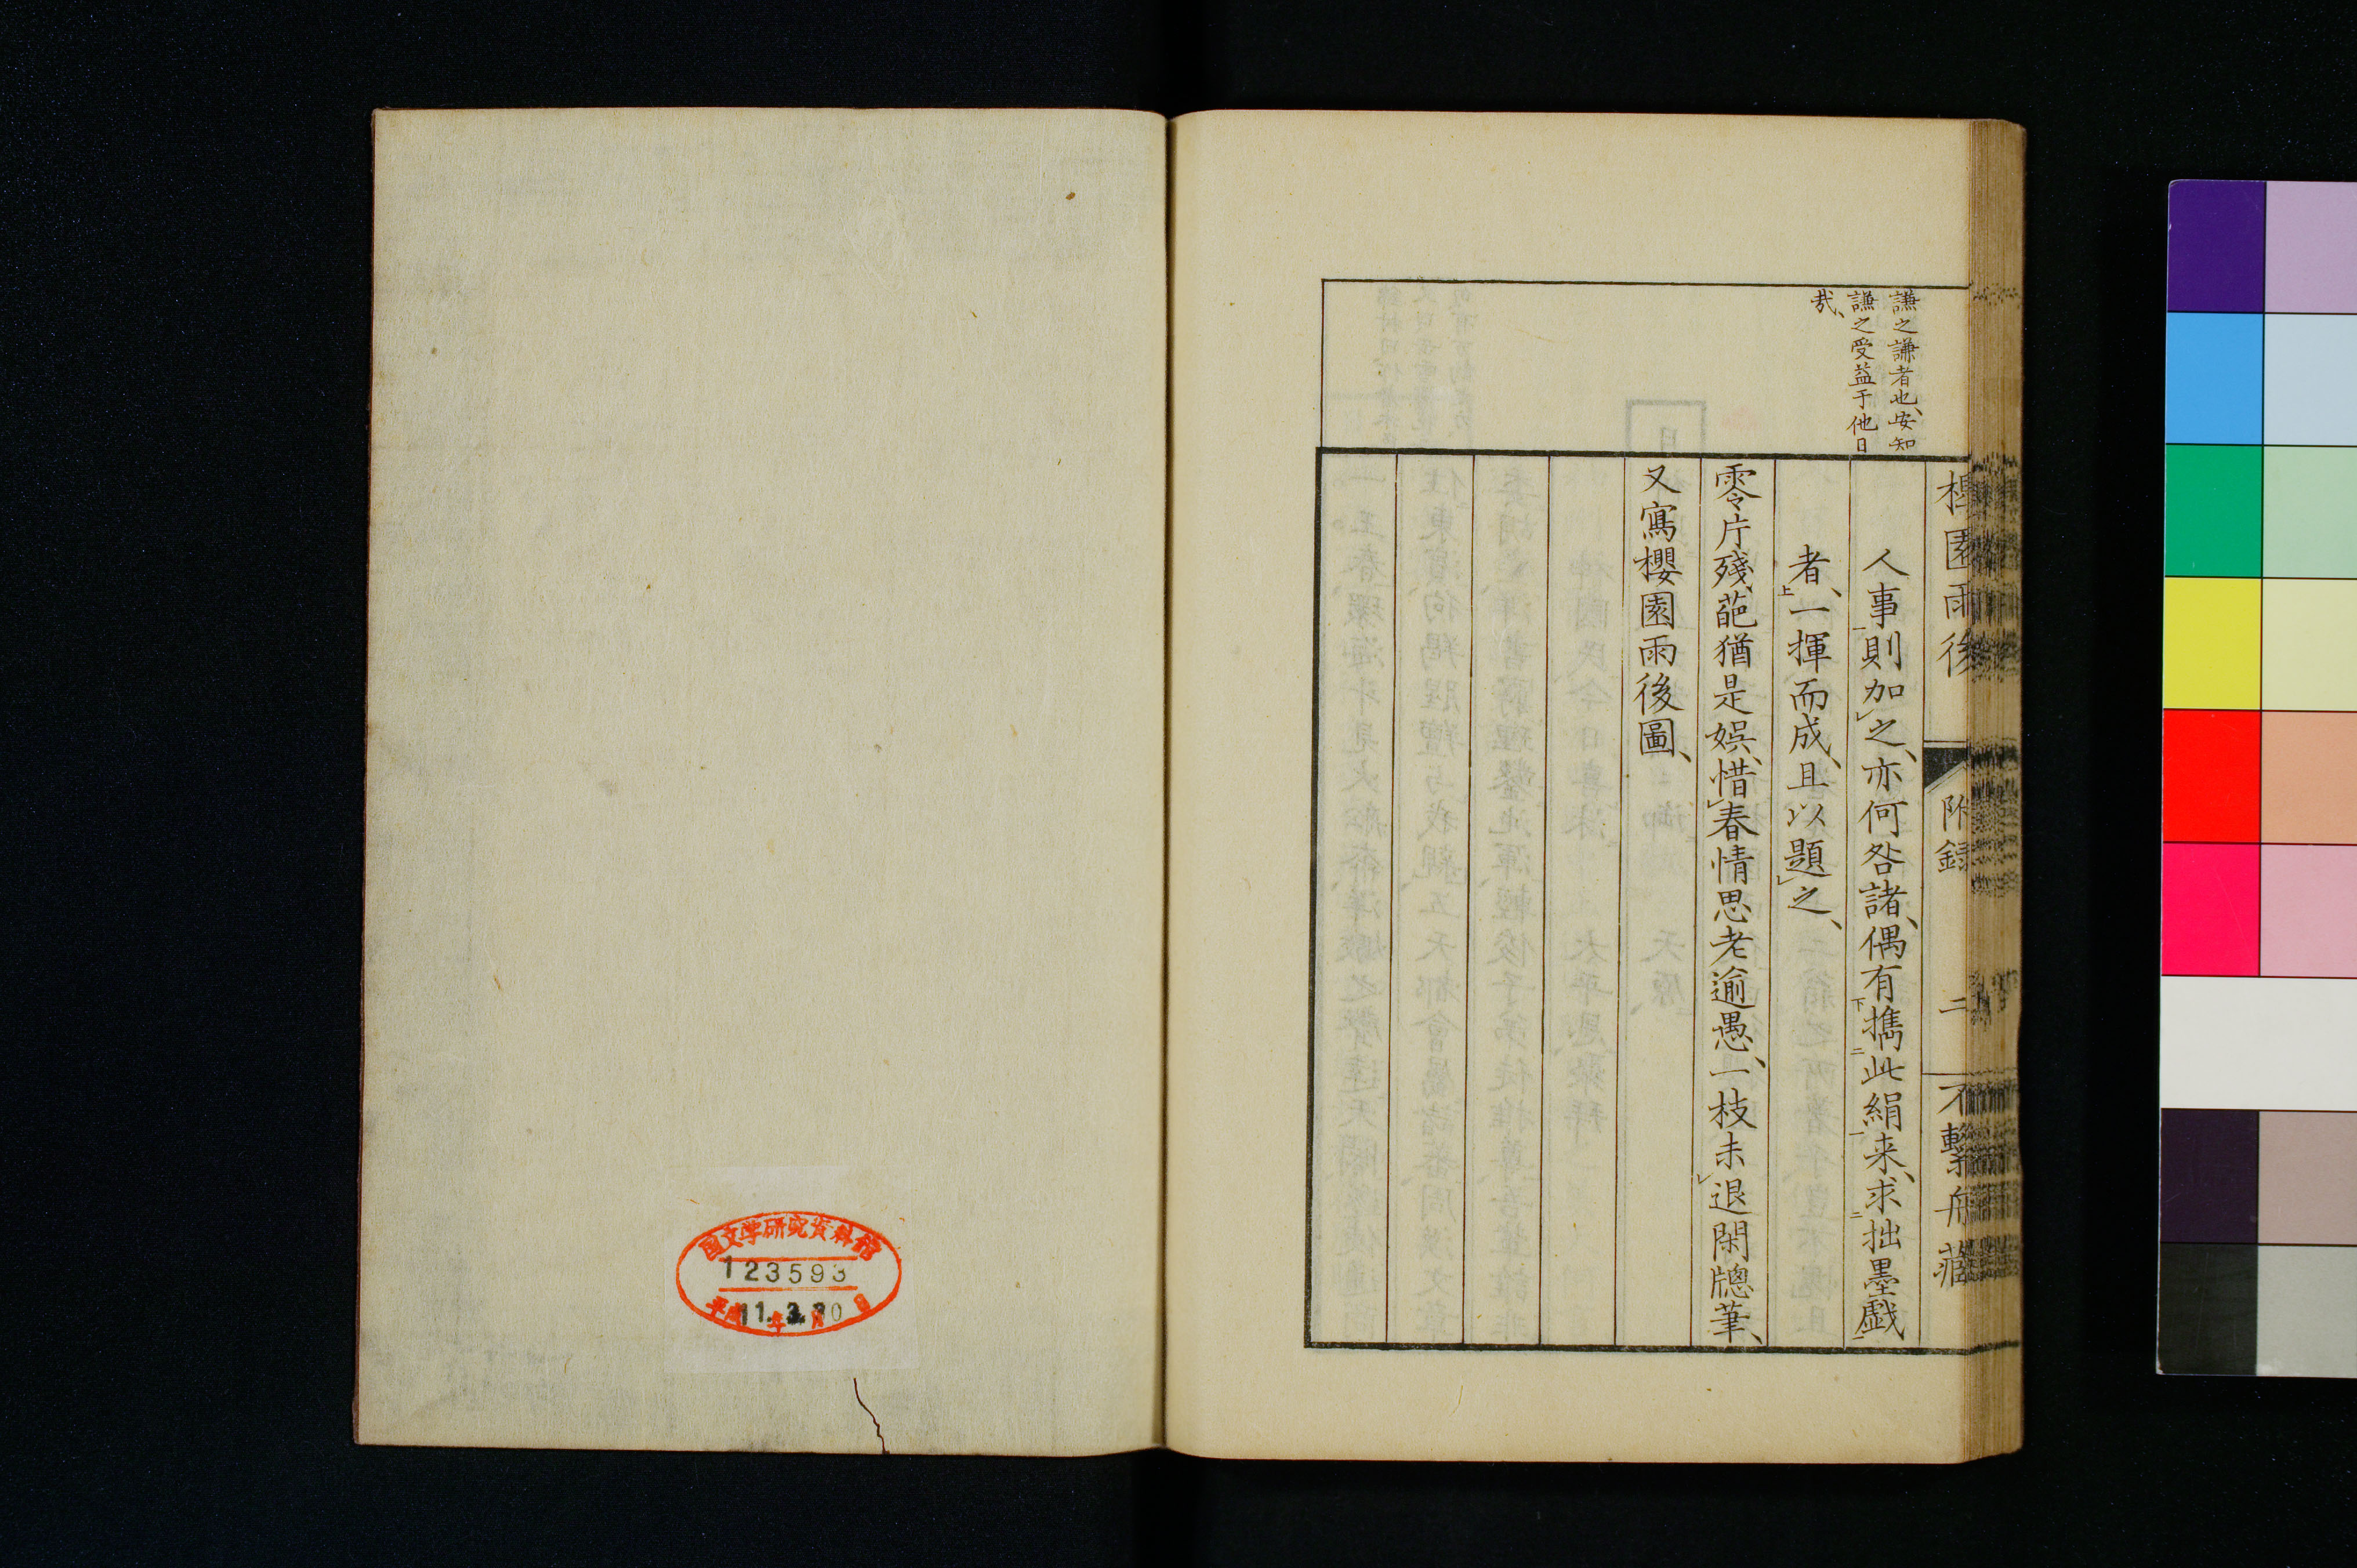 謙之謙者也、安知
謙之受益于他日
哉、
櫻園雨後 附錄 二 不繫舟藏
人事則加之、亦何咎諸、偶有攜此絹来、求拙墨戯
者、一揮而成、且以題之、
零片殘葩猶是娯、惜春情思老逾愚、一枝未退閑牕筆、
又寫櫻園雨後圖、
国文学研究資料館
123593
平成11年3月30日